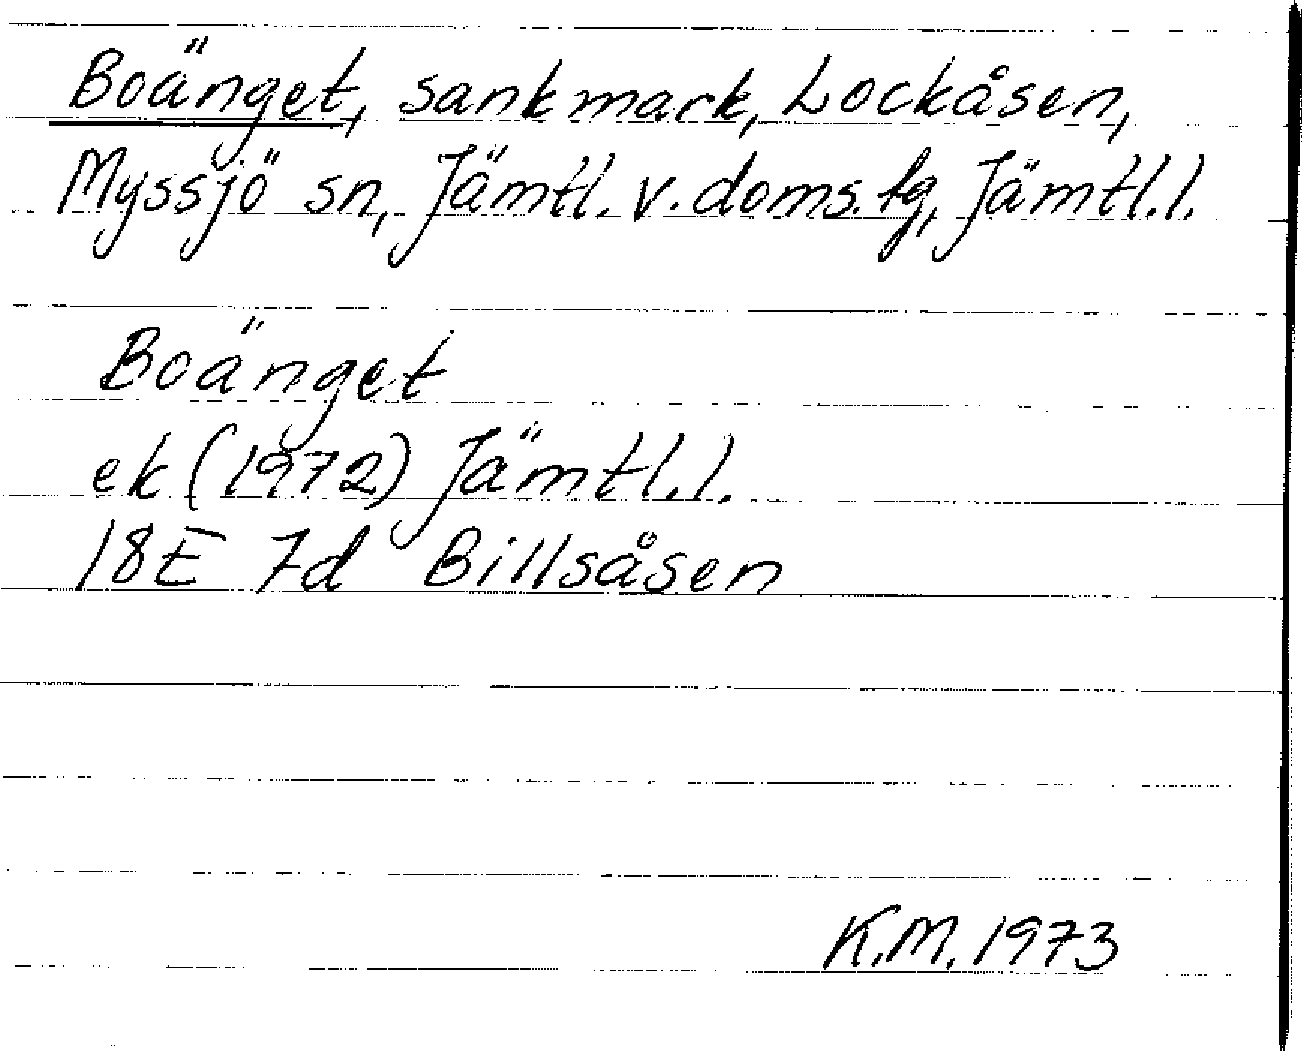 Boänget, sankmark, Lockåsen,
Myssjö sn, Jämtl. v. doms. tg, Jämtl.l.
Boänget
ek (1972) Jämtl.l.
18E 7d Billsåsen
K.M. 1973